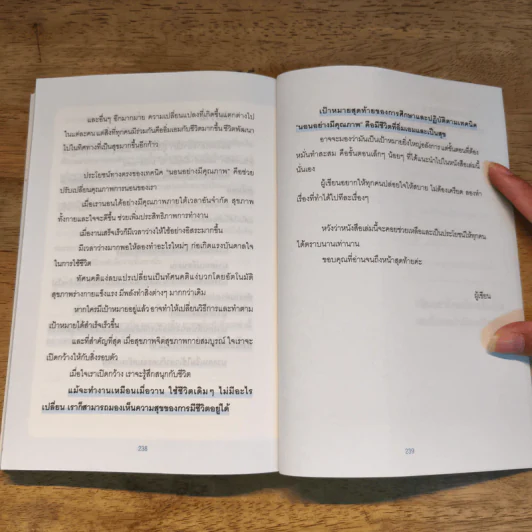 และอื่นๆ อีกมากมาย ความเปลี่ยนแปลงที่เกิดขึ้นแตกต่างไป
ในแต่ละคน แต่สิ่งที่ทุกคนมีร่วมกันคืออิ่มเอมกับชีวิตมากขึ้น ชีวิตพัฒนา
ไปในทิศทางที่เป็นสุขมากขึ้นอีกก้าว
ประโยชน์ทางตรงของเทคนิค "นอนอย่างมีคุณภาพ" คือช่วย
ปรับเปลี่ยนคุณภาพการนอนของเรา
เมื่อเรานอนได้อย่างมีคุณภาพภายใต้เวลาอันจำกัด สุขภาพ
ทั้งกายและใจจะดีขึ้น ช่วยเพิ่มประสิทธิภาพการทำงาน
เมื่องานเสร็จเร็วก็มีเวลาว่างให้ใช้อย่างอิสระมากขึ้น
มีเวลาว่างมากพอให้ลองทำอะไรใหม่ๆ ก่อเกิดแรงบันดาลใจ
ในการใช้ชีวิต
ทัศนคติแง่ลบแปรเปลี่ยนเป็นทัศนคติแง่บวกโดยอัตโนมัติ
สุขภาพร่างกายแข็งแรง มีพลังทำสิ่งต่างๆ มากกว่าเดิม
หากใครมีเป้าหมายอยู่แล้ว อาจทำให้เปลี่ยนวิธีการและทำตาม
เป้าหมายได้สำเร็จเร็วขึ้น
และที่สำคัญที่สุด เมื่อสุขภาพจิตสุขภาพกายสมบูรณ์ ใจเราจะ
เปิดกว้างให้กับสิ่งรอบตัว
เมื่อใจเราเปิดกว้าง เราจะรู้สึกสนุกกับชีวิต
แม้จะทำงานเหมือนเมื่อวาน ใช้ชีวิตเดิมๆ ไม่มีอะไร
เปลี่ยน เราก็สามารถมองเห็นความสุขของการมีชีวิตอยู่ได้
238
เป้าหมายสุดท้ายของการศึกษาและปฏิบัติตามเทคนิค
"นอนอย่างมีคุณภาพ" คือมีชีวิตที่อิ่มเอมและเป็นสุข
อาจจะมองว่ามันเป็นเป้าหมายยิ่งใหญ่อลังการ แต่ขั้นตอนที่ต้อง
หมั่นทำสะสม คือขั้นตอนเล็กๆ น้อยๆ ที่ได้แนะนำไปในหนังสือเล่มนี้
นั่นเอง
ผู้เขียนอยากให้ทุกคนปล่อยใจให้สบาย ไม่ต้องเครียด ลองทำ
เรื่องที่ทำได้ไปทีละเรื่องๆ
หวังว่าหนังสือเล่มนี้จะคอยช่วยเหลือและเป็นประโยชน์ให้ทุกคน
ได้ตราบนานเท่านาน
ขอบคุณที่อ่านจนถึงหน้าสุดท้ายค่ะ
ผู้เขียน
239